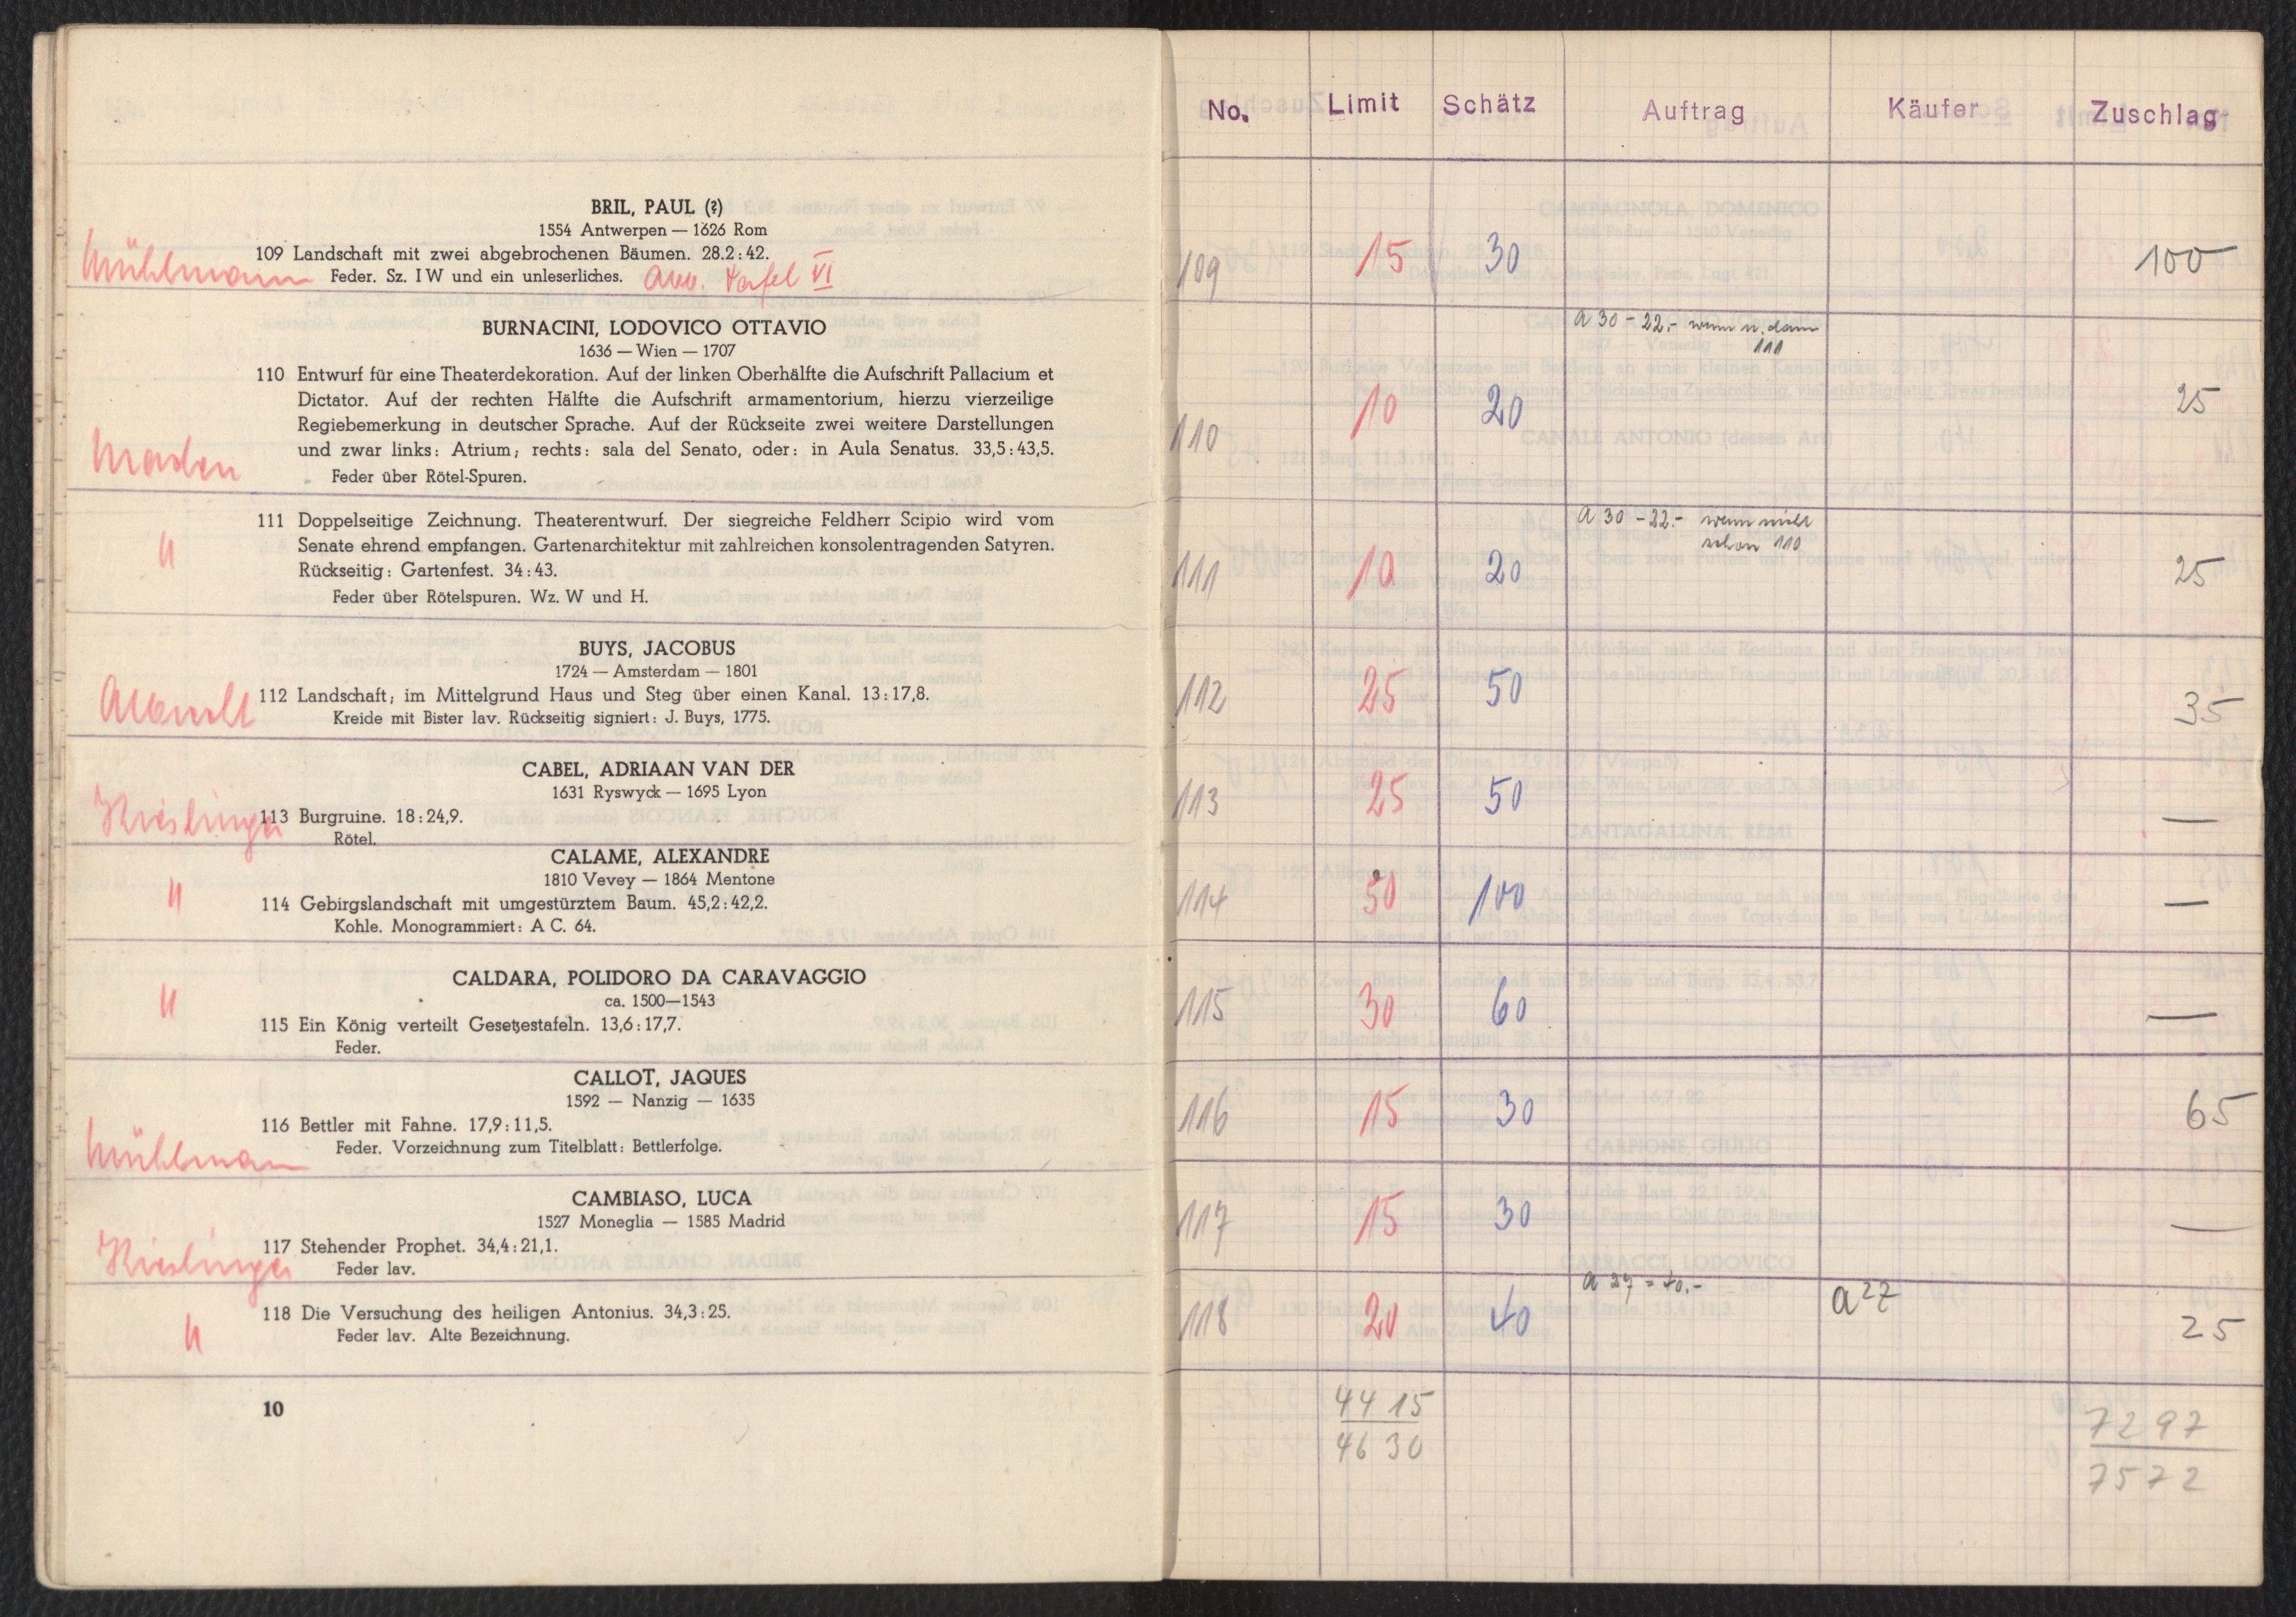 BRIL, PAUL (?)
1554 Antwerpen — 1626 Rom
Mühlmann
109 Landschaft mit zwei abgebrochenen Bäumen. 28.2 : 42.
Feder. Sz. I W und ein unleserliches. Tafel VI
BURNACINI, LODOVICO OTTAVIO
1636 — Wien — 1707
110 Entwurf für eine Theaterdekoration. Auf der linken Oberhälfte die Aufschrift Pallacium et
Dictator. Auf der rechten Hälfte die Aufschrift armamentorium, hierzu vierzeilige
Regiebemerkung in deutscher Sprache. Auf der Rückseite zwei weitere Darstellungen
und zwar links: Atrium; rechts: sala del Senato, oder: in Aula Senatus. 33,5 : 43,5.
Feder über Rötel-Spuren.
111 Doppelseitige Zeichnung. Theaterentwurf. Der siegreiche Feldherr Scipio wird vom
Senate ehrend empfangen. Gartenarchitektur mit zahlreichen konsolentragenden Satyren.
Rückseitig: Gartenfest. 34 : 43.
Feder über Rötelspuren. Wz. W und H.
"
BUYS, JACOBUS
1724 — Amsterdam — 1801
112 Landschaft; im Mittelgrund Haus und Steg über einen Kanal. 13 : 17,8.
Kreide mit Bister lav. Rückseitig signiert: J. Buys, 1775.
CABEL, ADRIAAN VAN DER
1631 Ryswyck — 1695 Lyon
Kieslinger
113 Burgruine. 18 : 24,9.
Rötel.
CALAME, ALEXANDRE
1810 Vevey — 1864 Mentone
"
114 Gebirgslandschaft mit umgestürztem Baum. 45,2 : 42,2.
Kohle. Monogrammiert: A C. 64.
CALDARA, POLIDORO DA CARAVAGGIO
ca. 1500—1543
"
115 Ein König verteilt Gesetzestafeln. 13,6 : 17,7.
Feder.
CALLOT, JAQUES
1592 — Nanzig — 1635
116 Bettler mit Fahne. 17,9 : 11,5.
Feder. Vorzeichnung zum Titelblatt: Bettlerfolge.
Mühlman
CAMBIASO, LUCA
1527 Moneglia — 1585 Madrid
117 Stehender Prophet. 34,4 : 21,1.
Kieslinger
Feder lav.
118 Die Versuchung des heiligen Antonius. 34,3 : 25.
Feder lav. Alte Bezeichnung.
"
10
No. Limit Schätz Auftrag Käufer Zuschlag
109 15 30 100
a 30 - 22.- wenn n. dann
111
110 10 20 25
a 30 - 22.- wenn nicht
schon 110
111 10 20 25
112 25 50 35
113 25 50 —
114 50 100 —
115 30 60 —
116 15 30 65
117 15 30 —
a 27 = 40.-
118 20 40 a 27 25
4415 7297
4630 7572